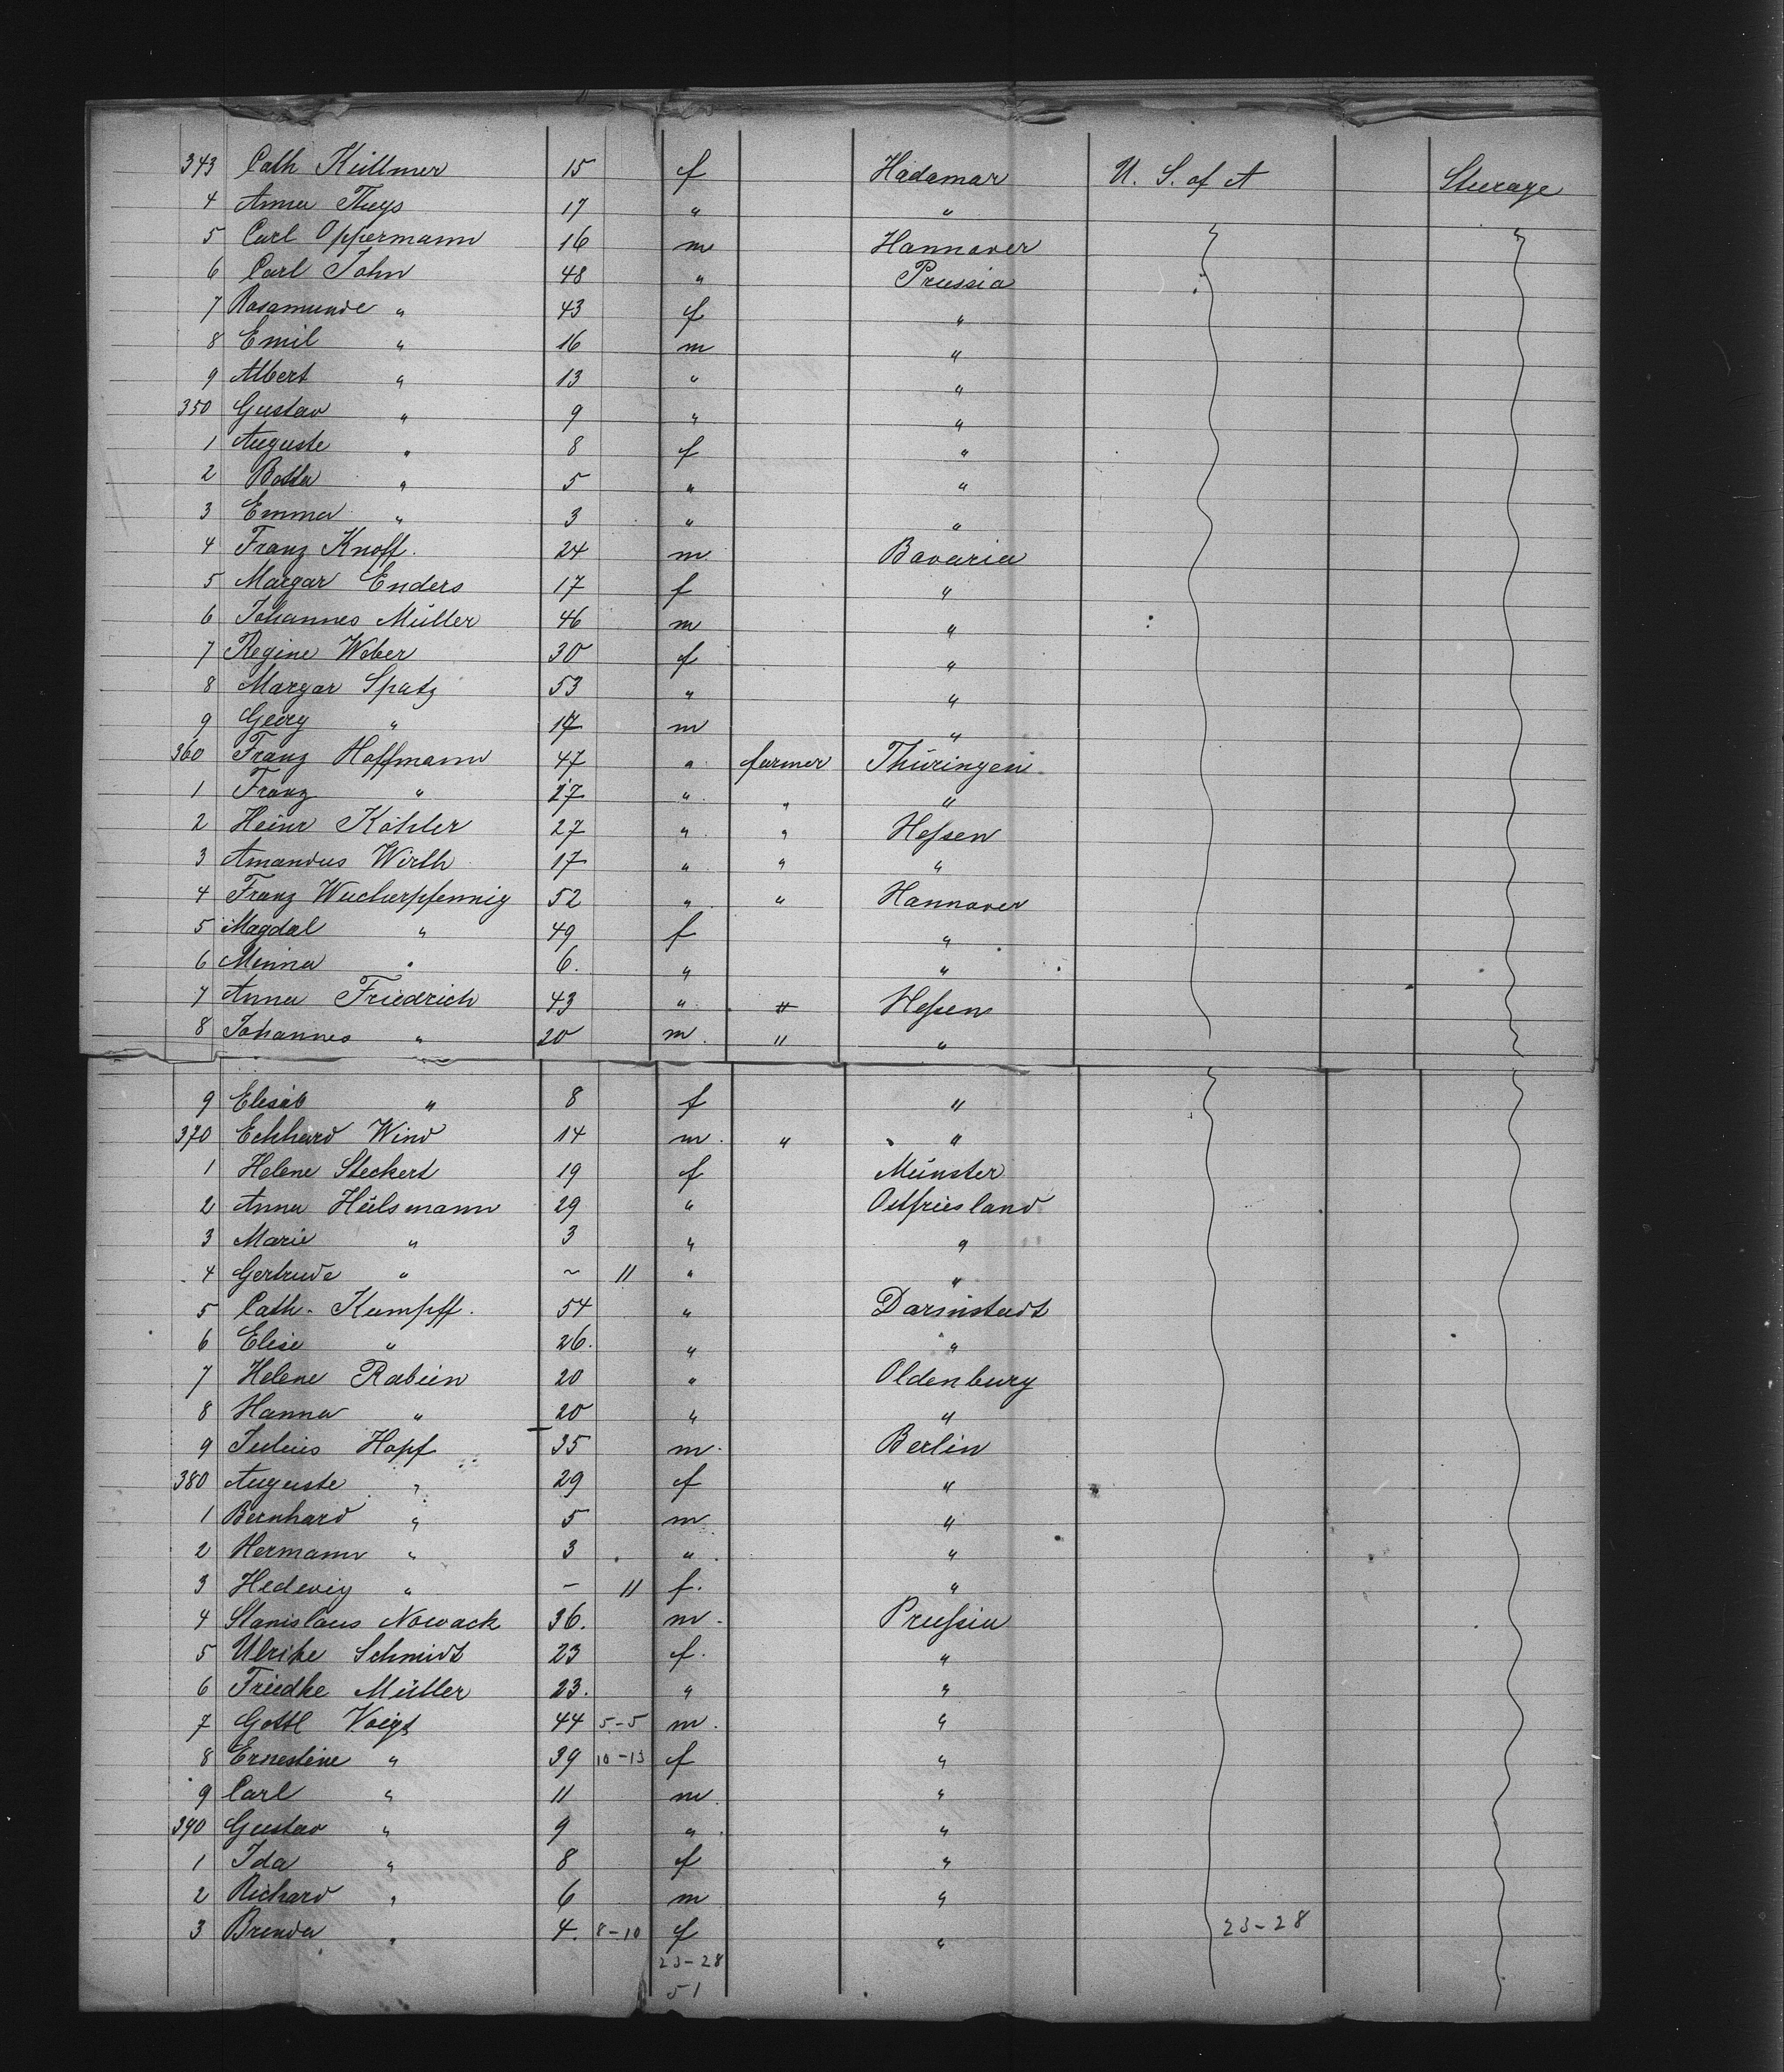 343 Cath Küllmer 15 f Hadamar U. S. of A Steerage
4 Anna Theys 17 " "
5 Carl Oppermann 16 m Hannover
6 Carl John 48 " Prussia
7 Rosamunde " 43 f "
8 Emil " 16 m "
9 Albert " 13 " "
350 Gustav " 9 " "
1 Auguste " 8 f "
2 " 5 " "
3 Emma " 3 " "
4 Franz Knoff. 24 m Bavaria
5 Margar Enders 17 f "
6 Johannes Müller 46 m "
7 Regine Weber 30 f "
8 Margar Spatz 53 " "
9 Georg " 17 m "
360 Franz Hoffmann 47 " farmer Thüringen
1 Franz " 17 " " "
2 Heinr Köhler 27 " " Heſsen
3 Amandus Wirth 17 " " "
4 Franz Wucherpfennig 52 " " Hannover
5 Magdal " 49 f "
6 Minna " 6. " "
7 Anna Friedrich 43 " " Heſsen
8 Johannes " 20 m. " "
9 Elisab " 8 f "
370 Eckhard Wind 14 m. " "
1 Helene Steckert 19 f Münster
2 Anna Hülsmann 29 " Ostfriesland
3 Marie " 3 " "
4 Gertrude " ~ 11 " "
5 Cath. Kumpff. 54 " Darmstadt
6 Elise " 26. " "
7 Helene Rabien 20 " Oldenburg
8 Hanna " 20 " "
9 Julius Hopf 35 m. Berlin
380 Auguste " 29 f "
1 Bernhard " 5 m "
2 Hermann " 3 " "
3 Hedewig " – 11 f. "
4 Stanislaus Nowack 36. m. Pruſsia
5 Ulrike Schmidt 23 f. "
6 Friedke Müller 23. " "
7 Gottl Voigt 44 5-5 m. "
8 Ernestine " 39 10-13 f "
9 Carl " 11 m. "
390 Gustav " 9 " "
1 Ida " 8 f "
2 Richard " 6 m "
3 " 4. 8-10 f " 23-28
23-28
51